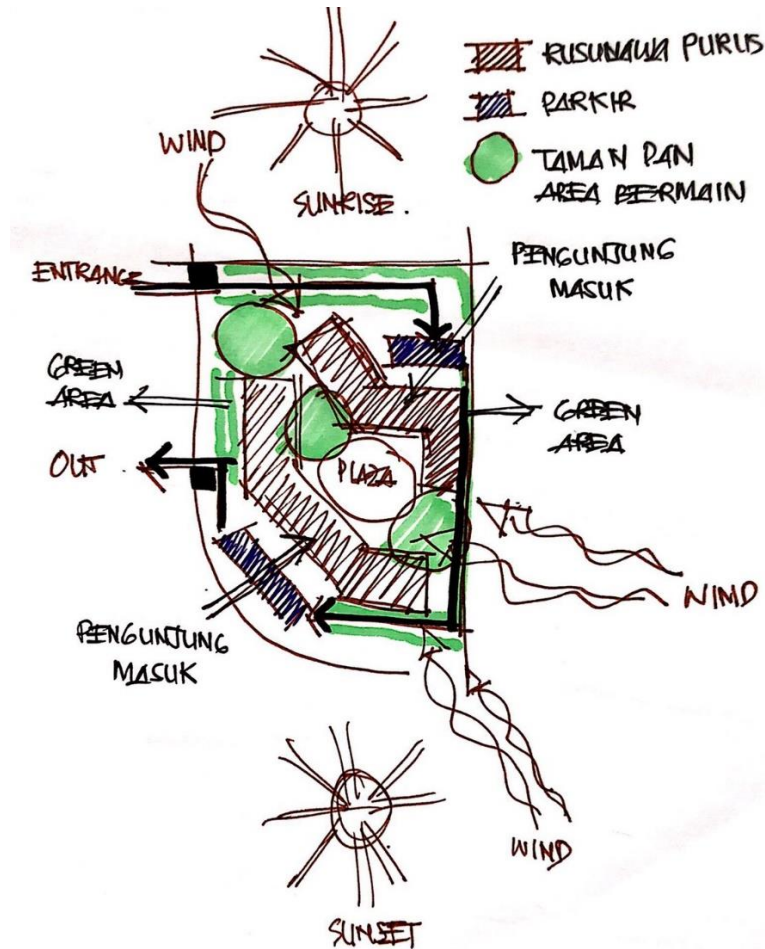 RUSUNAWA PURUS
PARKIR
TAMAN DAN
AREA BERMAIN
WIND
SUNRISE.
ENTRANCE
PENGUNJUNG
MASUK
GREEN
AREA
GREEN
AREA
OUT
PLAZA
WIND
PENGUNJUNG
MASUK
WIND
SUNSET